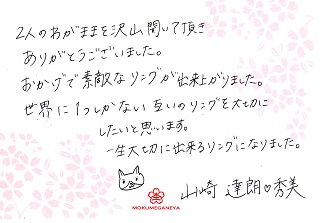 2人のわがままを沢山聞いて頂き
ありがとうございました。
おかげで素敵なリングが出来上がりました。
世界に1つしかない互いのリングを大切に
したいと思います。
一生大切に出来るリングになりました。
山崎 達朗 秀美
MOKUMEGANEYA